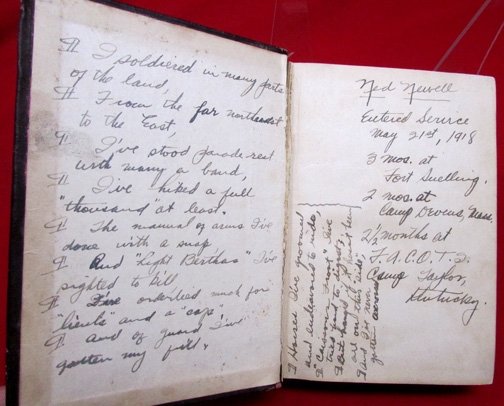 ¶ I soldiered in many parts
of the land,
¶ From the far northeast
to the East,
¶ I've stood parade rest
with many a band,
¶ I've hiked a full
"thousand" at least.
¶ The manual of arms I've
done with a snap
¶ And "Light Berthas" I've
sighted to kill
¶ I've orderlied much for
"lieuts" and a "cap",
¶ And of guard I've
gotten my fill.
Ned Newell
Entered Service
May 21st, 1918
3 mos. at
Fort Snelling.
2 mos. at
Camp Devens, Mass.
2½ months at
F.A.C.O.T.S.
Camp Taylor,
Kentucky.
¶ Horses I've groomed
and endeavored to ride,
¶ "Caisson Front" I've
tried hard to
¶ But
all on this "side"
¶ And I've never
gotten across